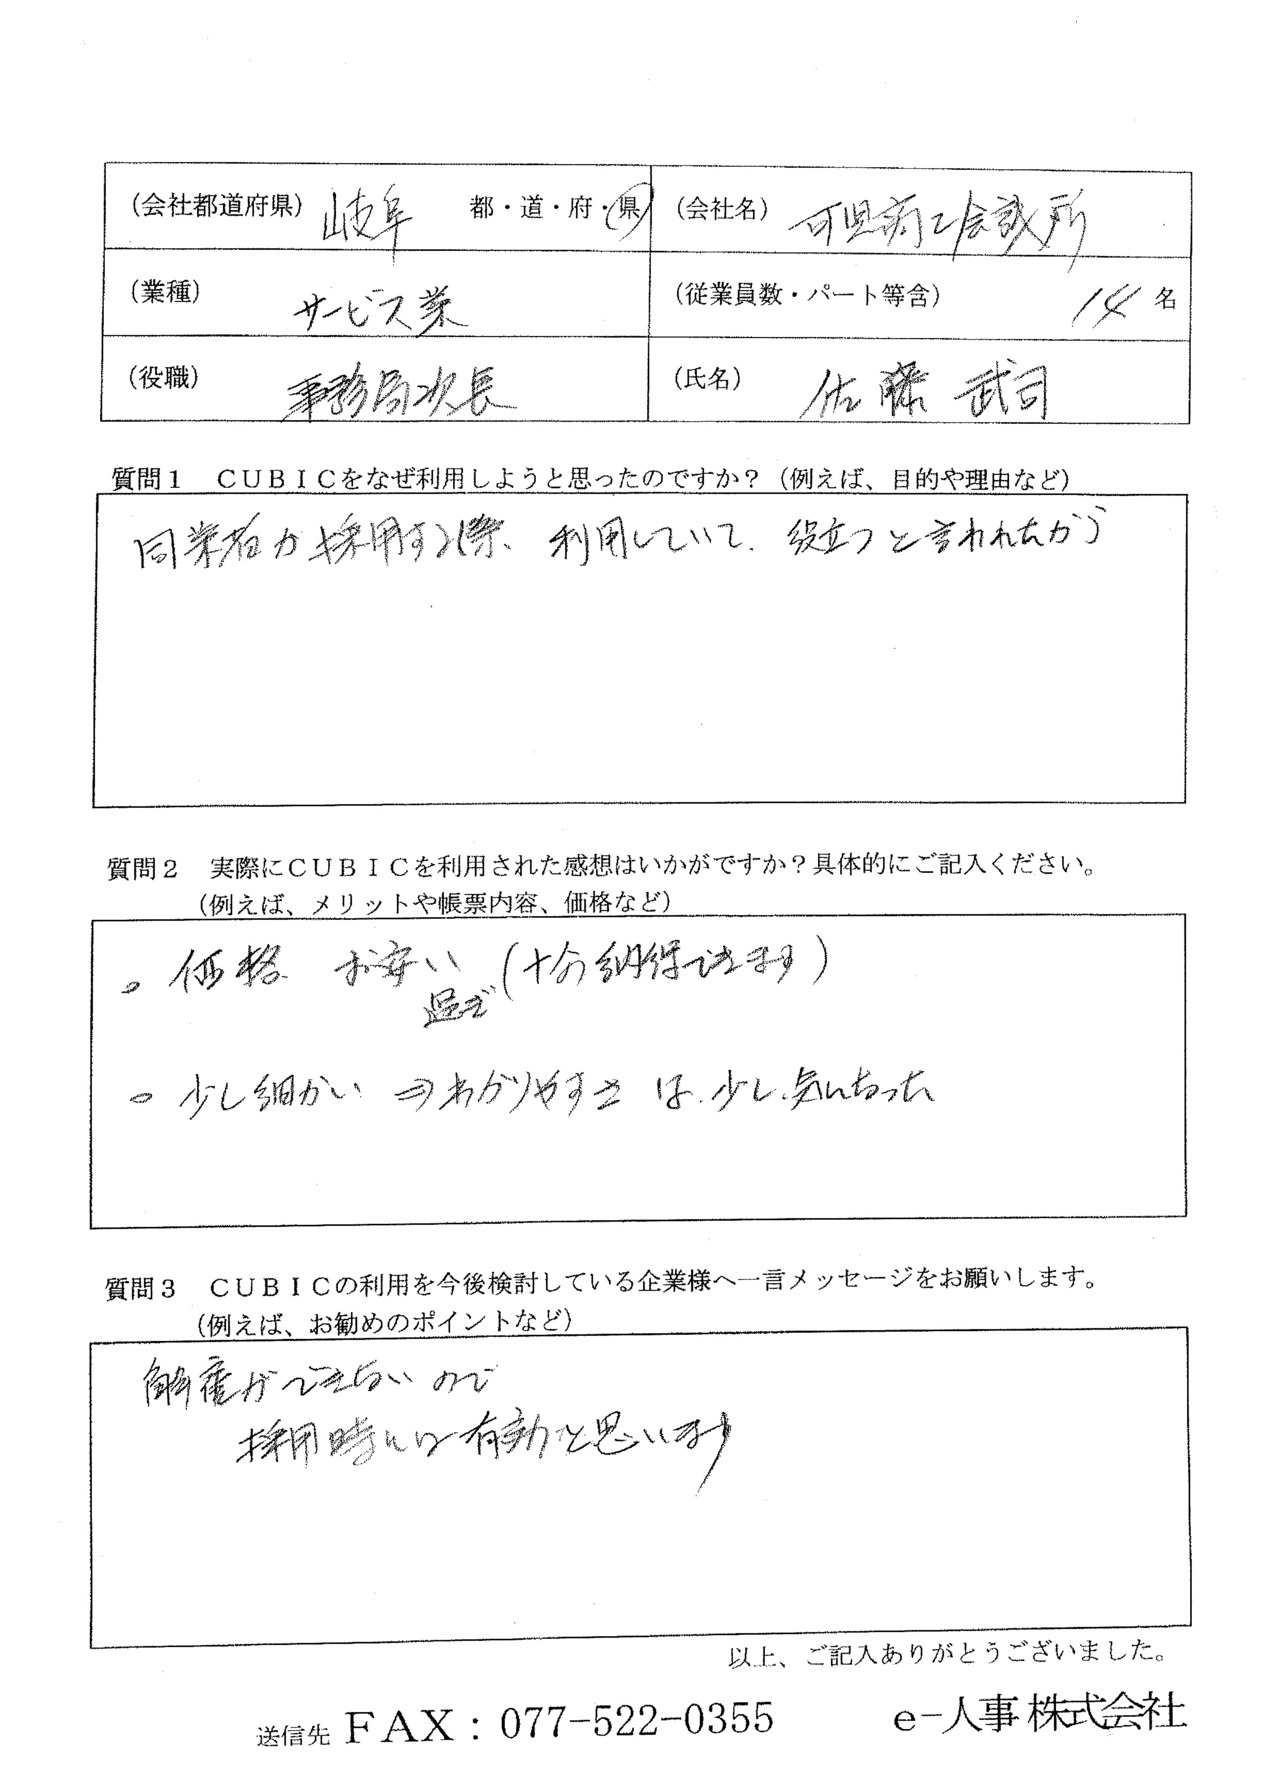 (会社都道府県) 岐阜 都・道・府・県 (会社名) 可児商工会議所
(業種) サービス業 (従業員数・パート等含) 14 名
(役職) 事務局次長 (氏名) 佐藤 武司
質問1 CUBICをなぜ利用しようと思ったのですか？(例えば、目的や理由など)
同業者が採用する際、利用していて、役立つと言われたから
質問2 実際にCUBICを利用された感想はいかがですか？具体的にご記入ください。
(例えば、メリットや帳票内容、価格など)
。価格 お安い (十分納得できます)
過ぎ
。少し細かい ⇒わかりやすさ は、少し、気になった
質問3 CUBICの利用を今後検討している企業様へ一言メッセージをお願いします。
(例えば、お勧めのポイントなど)
解雇ができないので
採用時には有効と思います
以上、ご記入ありがとうございました。
送信先 FAX：077-522-0355 e-人事 株式会社